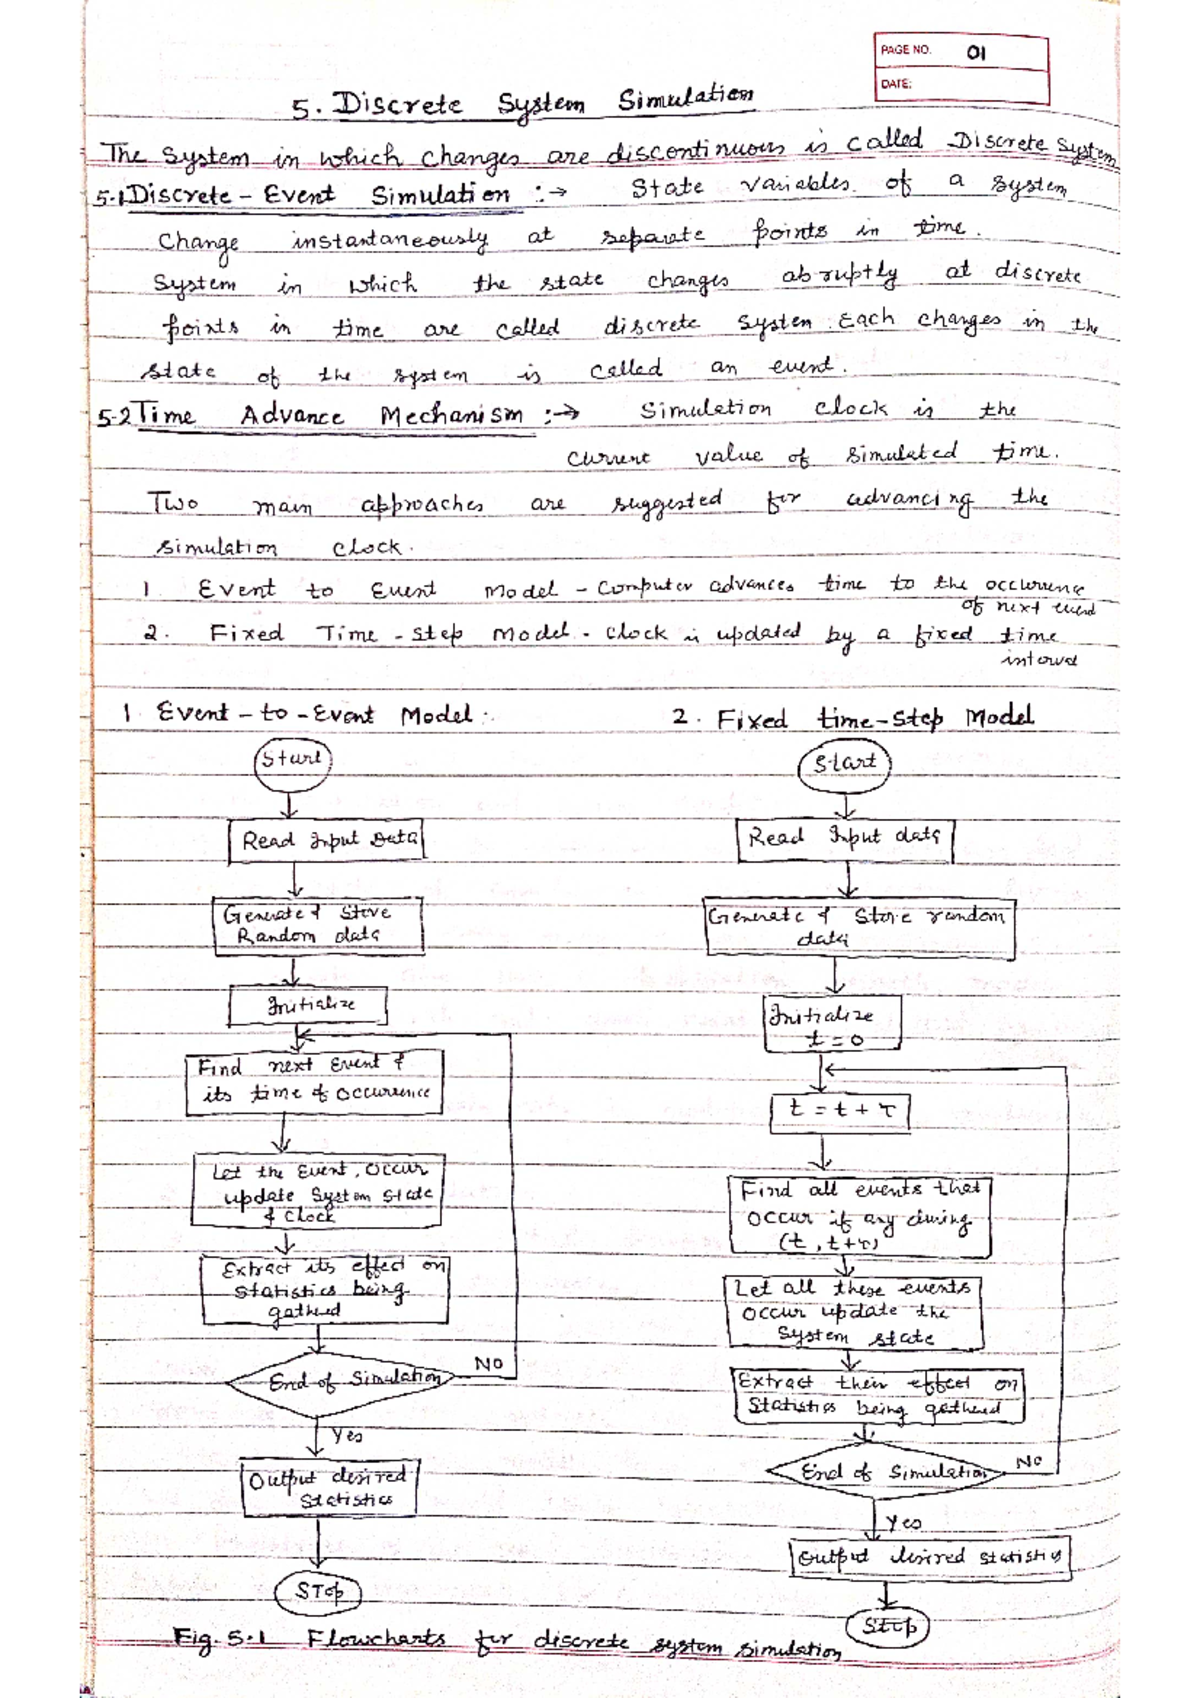 PAGE NO. 01
DATE:
5. Discrete System Simulation
The System in which changes are discontinuous is called Discrete System
5.1 Discrete - Event Simulation :→ State variables of a system
change instantaneously at separate points in time.
System in which the state changes abruptly at discrete
points in time are called discrete system. Each changes in the
state of the system is called an event.
5.2 Time Advance Mechanism :→ Simulation clock is the
current value of simulated time.
Two main approaches are suggested for advancing the
simulation clock.
1 Event to Event Model - Computer advances time to the occurrence
of next event
2. Fixed Time - Step Model - Clock is updated by a fixed time
interval
1 Event - to - Event Model :.
Start
Read Input Data
Generate & Store
Random data
Initialize
Find next Event &
its time of occurrence
Let the Event, occur
update System state
& Clock
Extract its effect on
statistics being
gathered
End of Simulation
NO
Yes
Output desired
Statistics
STOP
2. Fixed time-Step Model
Start
Read Input data
Generate & Store random
data
Initialize
t = 0
t = t + τ
Find all events that
occur if any during
(t, t+τ)
Let all these events
occur update the
System state
Extract their effect on
Statistics being gathered
End of Simulation
No
Yes
Output desired statistics
Stop
Fig. 5.1 Flowcharts for discrete system simulation